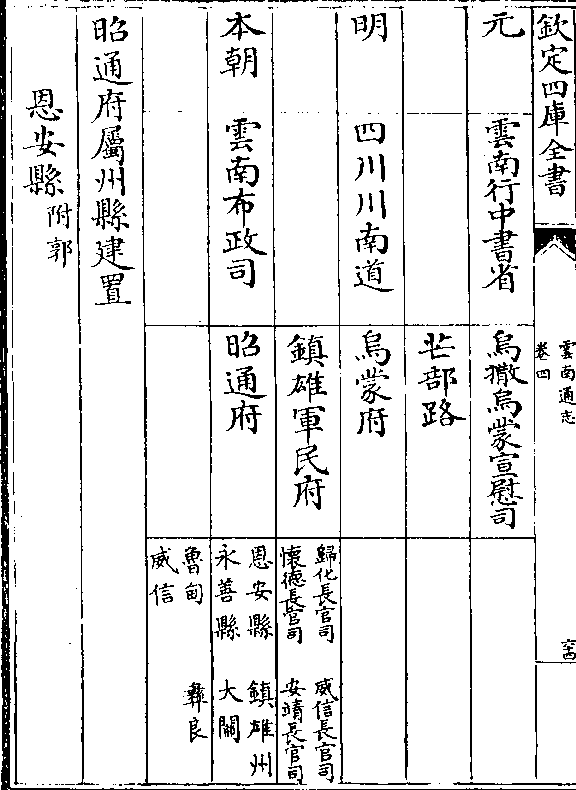 欽定四庫全書
雲南通志
卷四
元 雲南行中書省 烏撒烏蒙宣慰司
芒部路
明 四川川南道 烏蒙府
鎮雄軍民府 歸化長官司 威信長官司
懷德長官司 安靖長官司
本朝 雲南布政司 昭通府 恩安縣 鎮雄州
永善縣 大關
魯甸 彝良
威信
昭通府屬州縣建置
恩安縣附郭